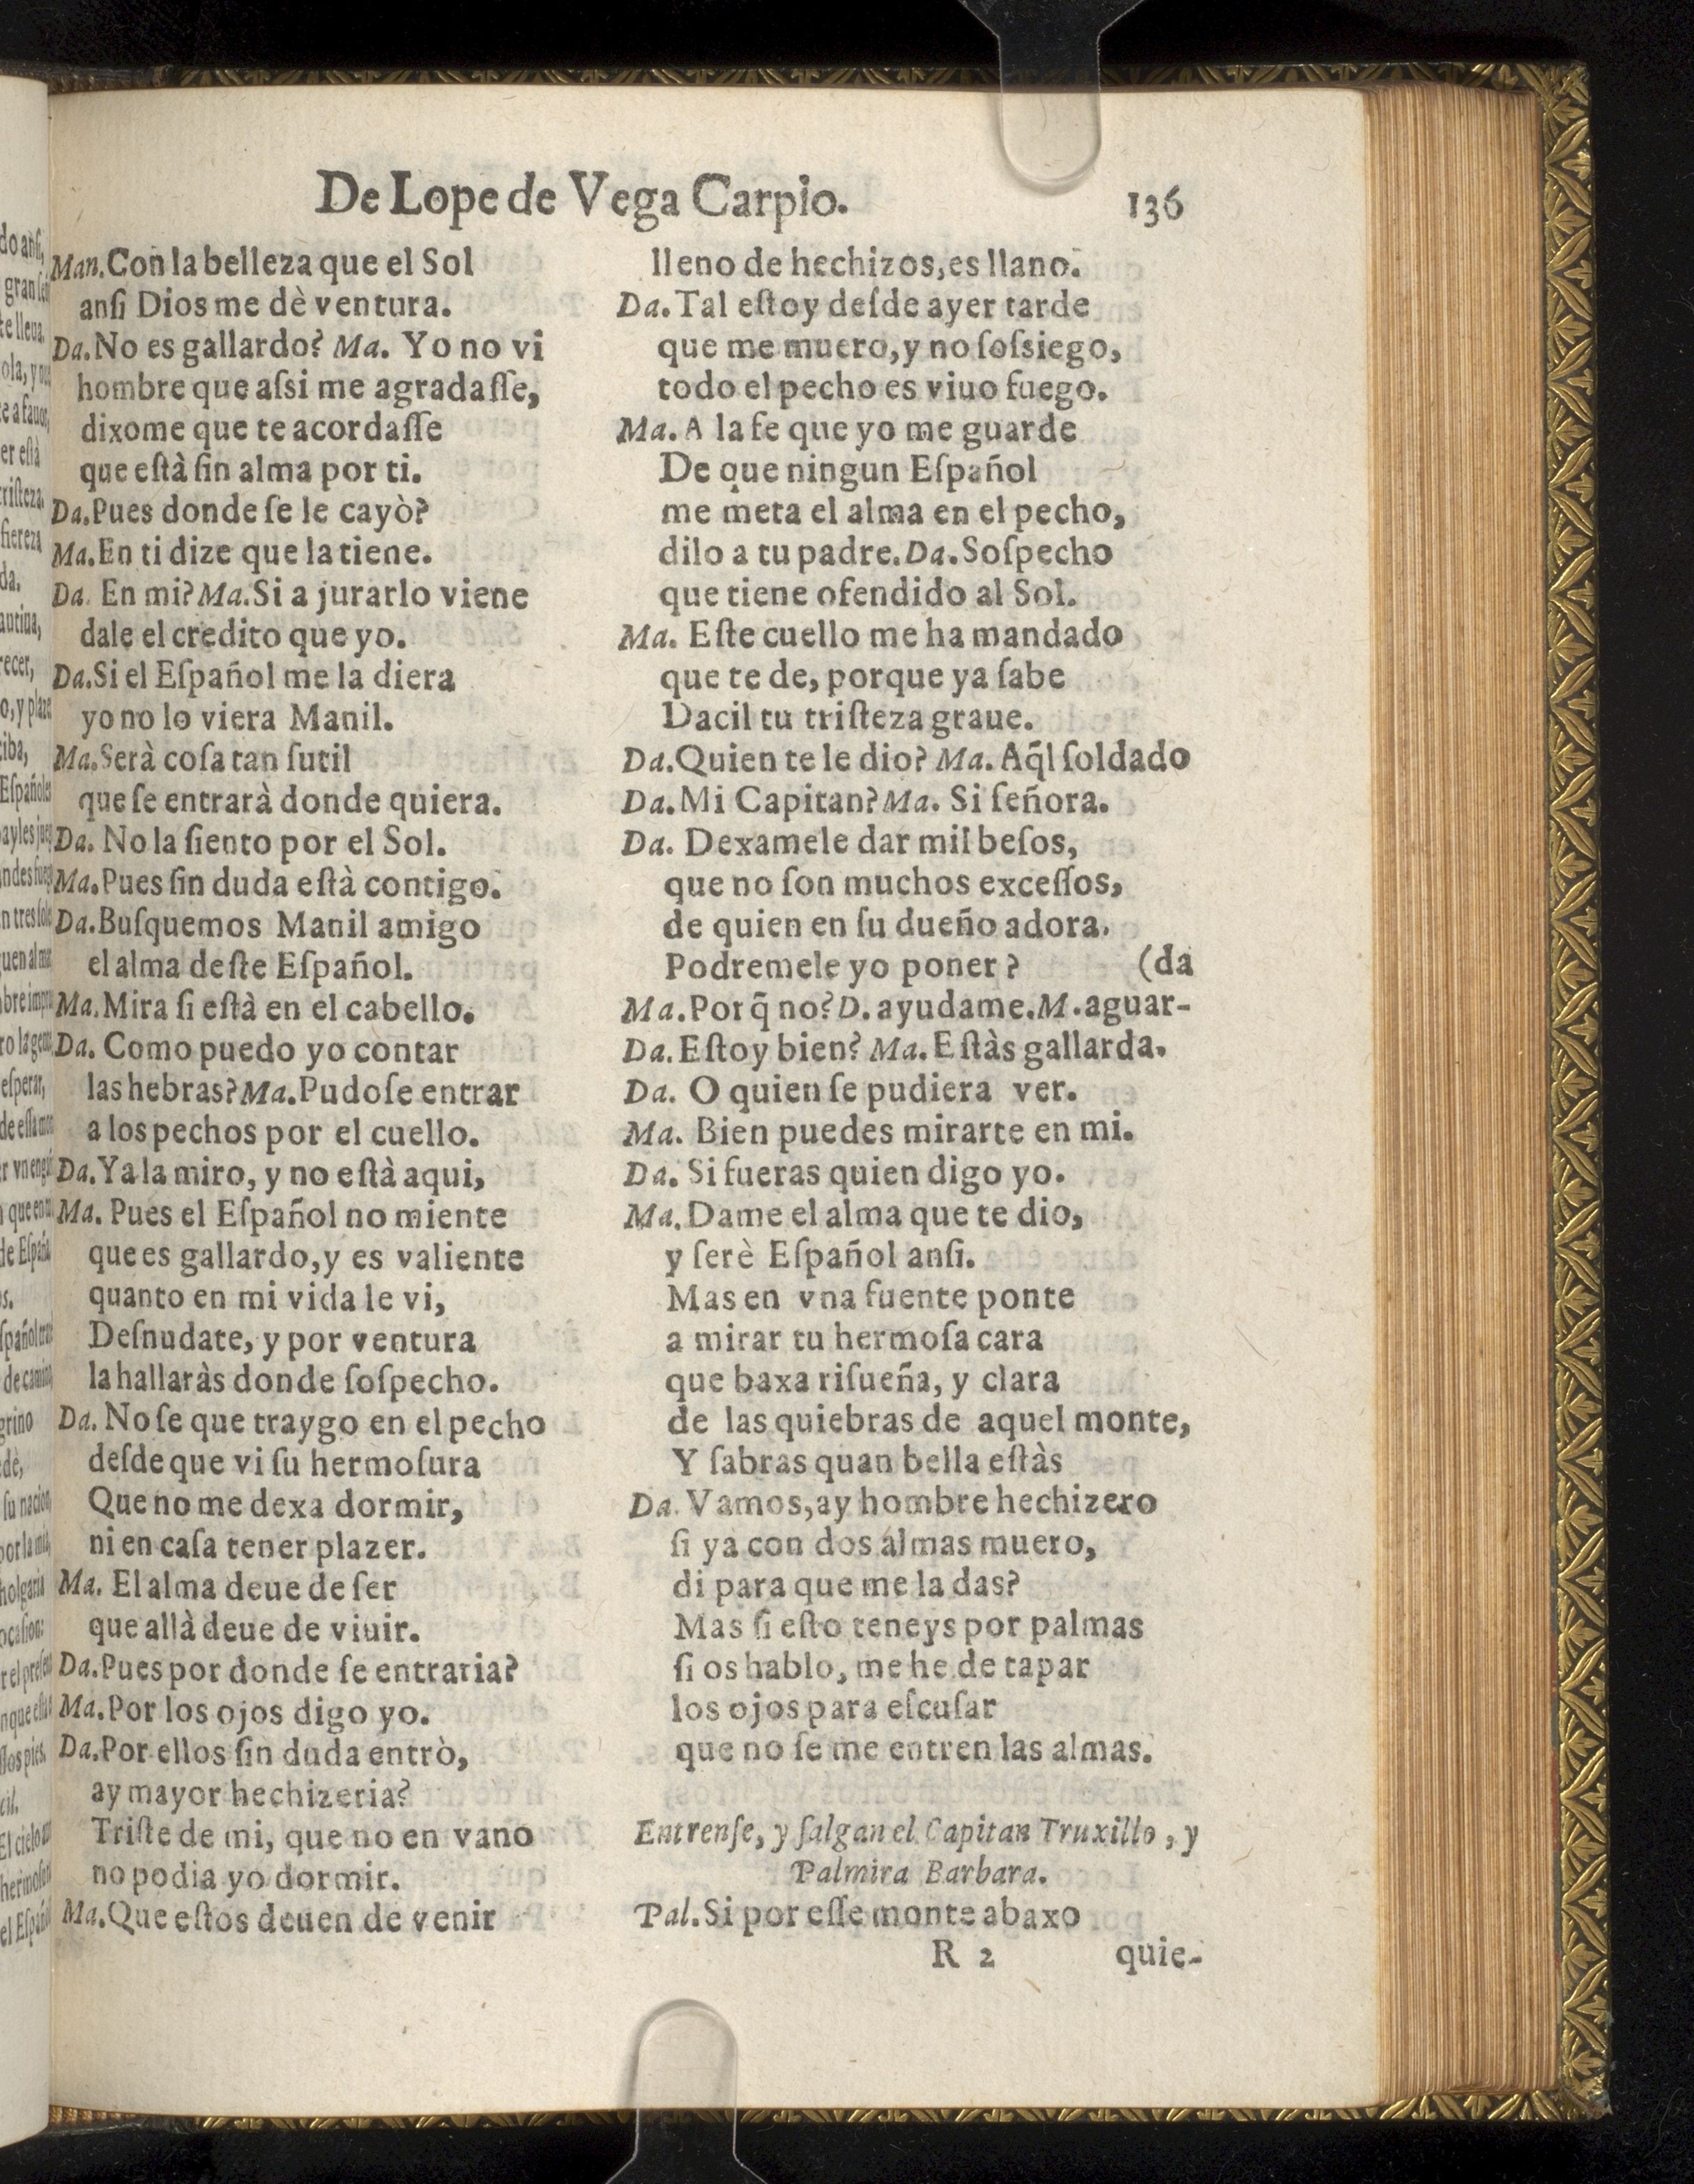 De Lope de Vega Carpio.
136
Man. Con la belleza que el Sol
anſi Dios me dè ventura.
Da. No es gallardo? Ma. Yo no vi
hombre que aſsi me agradaſſe,
dixome que te acordaſſe
que eſtà ſin alma por ti.
Da. Pues donde ſe le cayò?
Ma. En ti dize que la tiene.
Da. En mi? Ma. Si a jurarlo viene
dale el credito que yo.
Da. Si el Eſpañol me la diera
yo no lo viera Manil.
Ma. Serà coſa tan ſutil
que ſe entrarà donde quiera.
Da. No la ſiento por el Sol.
Ma. Pues ſin duda eſtà contigo.
Da. Buſquemos Manil amigo
el alma deſte Eſpañol.
Ma. Mira ſi eſtà en el cabello.
Da. Como puedo yo contar
las hebras? Ma. Pudoſe entrar
a los pechos por el cuello.
Da. Ya la miro, y no eſtà aqui,
Ma. Pues el Eſpañol no miente
que es gallardo, y es valiente
quanto en mi vida le vi,
Deſnudate, y por ventura
la hallaràs donde ſoſpecho.
Da. No ſe que traygo en el pecho
deſde que vi ſu hermoſura
Que no me dexa dormir,
ni en caſa tener plazer.
Ma. El alma deue de ſer
que allà deue de viuir.
Da. Pues por donde ſe entraria?
Ma. Por los ojos digo yo.
Da. Por ellos ſin duda entrò,
ay mayor hechizeria?
Triſte de mi, que no en vano
no podia yo dormir.
Ma. Que eſtos deuen de venir
lleno de hechizos, es llano.
Da. Tal eſtoy deſde ayer tarde
que me muero, y no ſoſsiego,
todo el pecho es viuo fuego.
Ma. A la fe que yo me guarde
De que ningun Eſpañol
me meta el alma en el pecho,
dilo a tu padre. Da. Soſpecho
que tiene ofendido al Sol.
Ma. Eſte cuello me ha mandado
que te de, porque ya ſabe
Dacil tu triſteza graue.
Da. Quien te le dio? Ma. Aq̃l ſoldado
Da. Mi Capitan? Ma. Si ſeñora.
Da. Dexamele dar mil beſos,
que no ſon muchos exceſſos,
de quien en ſu dueño adora.
Podremele yo poner? (da
Ma. Porq̃ no? D. ayudame. M. aguar-
Da. Eſtoy bien? Ma. Eſtàs gallarda.
Da. O quien ſe pudiera ver.
Ma. Bien puedes mirarte en mi.
Da. Si fueras quien digo yo.
Ma. Dame el alma que te dio,
y ſerè Eſpañol anſi.
Mas en vna fuente ponte
a mirar tu hermoſa cara
que baxa riſueña, y clara
de las quiebras de aquel monte,
Y ſabras quan bella eſtàs
Da. Vamos, ay hombre hechizero
ſi ya con dos almas muero,
di para que me la das?
Mas ſi eſto teneys por palmas
ſi os hablo, me he de tapar
los ojos para eſcuſar
que no ſe me entren las almas.
Entrenſe, y ſalgan el Capitan Truxillo, y
Palmira Barbara.
Pal. Si por eſſe monte abaxo
R 2
quie-